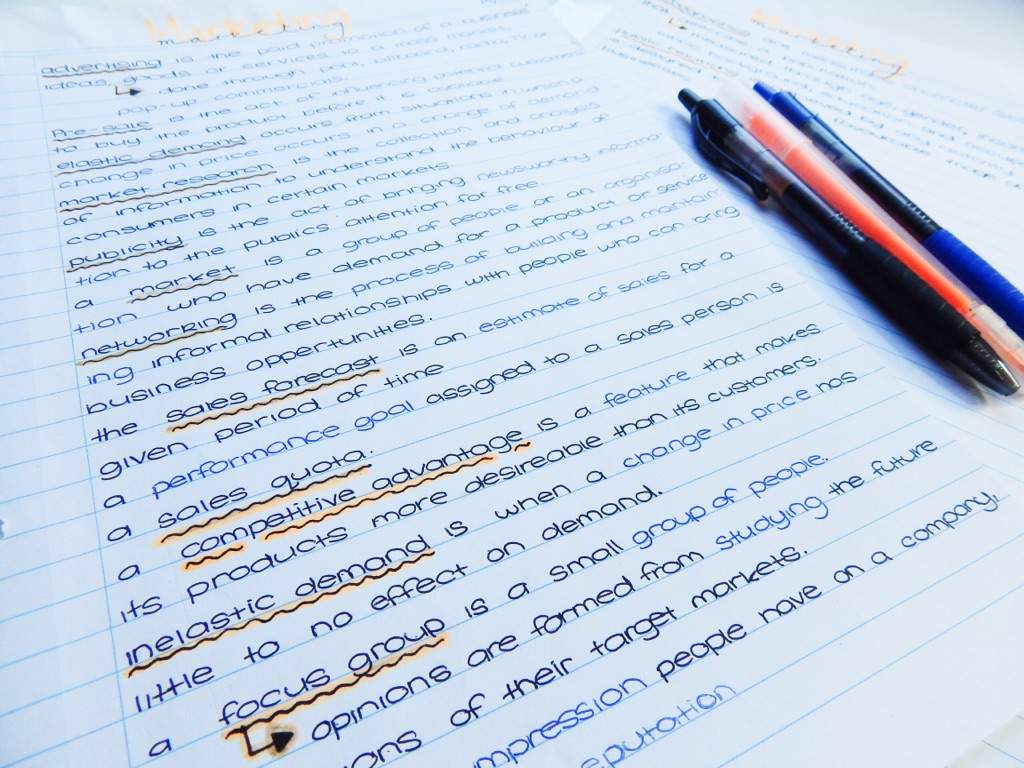 Marketing
advertising is the paid promotion of a business'
ideas, goods or services to a mass market.
done through print, billboard, radio, TV or
pop-up commercials.
Pre-sale is the act of influencing potential customers
to buy the product before it is available
elastic demand occurs from situations in which a
change in price occurs in a change of demand
market research is the collection and analysis
of information to understand the behaviour of
consumers in certain markets.
publicity is the act of bringing newsworthy informa-
tion to the publics attention for free.
a market is a group of people or an organisa-
tion who have demand for a product or service
networking is the process of building and maintain-
ing informal relationships with people who can bring
business oppertunities.
the sales forecast is an estimate of sales for a
given period of time
a performance goal assigned to a sales person is
a sales quota.
a competitive advantage is a feature that makes
its products more desireable than its customers.
inelastic demand is when a change in price has
little to no effect on demand.
a focus group is a small group of people.
opinions are formed from studying the future
of their target markets.
people have on a company,
Marketing